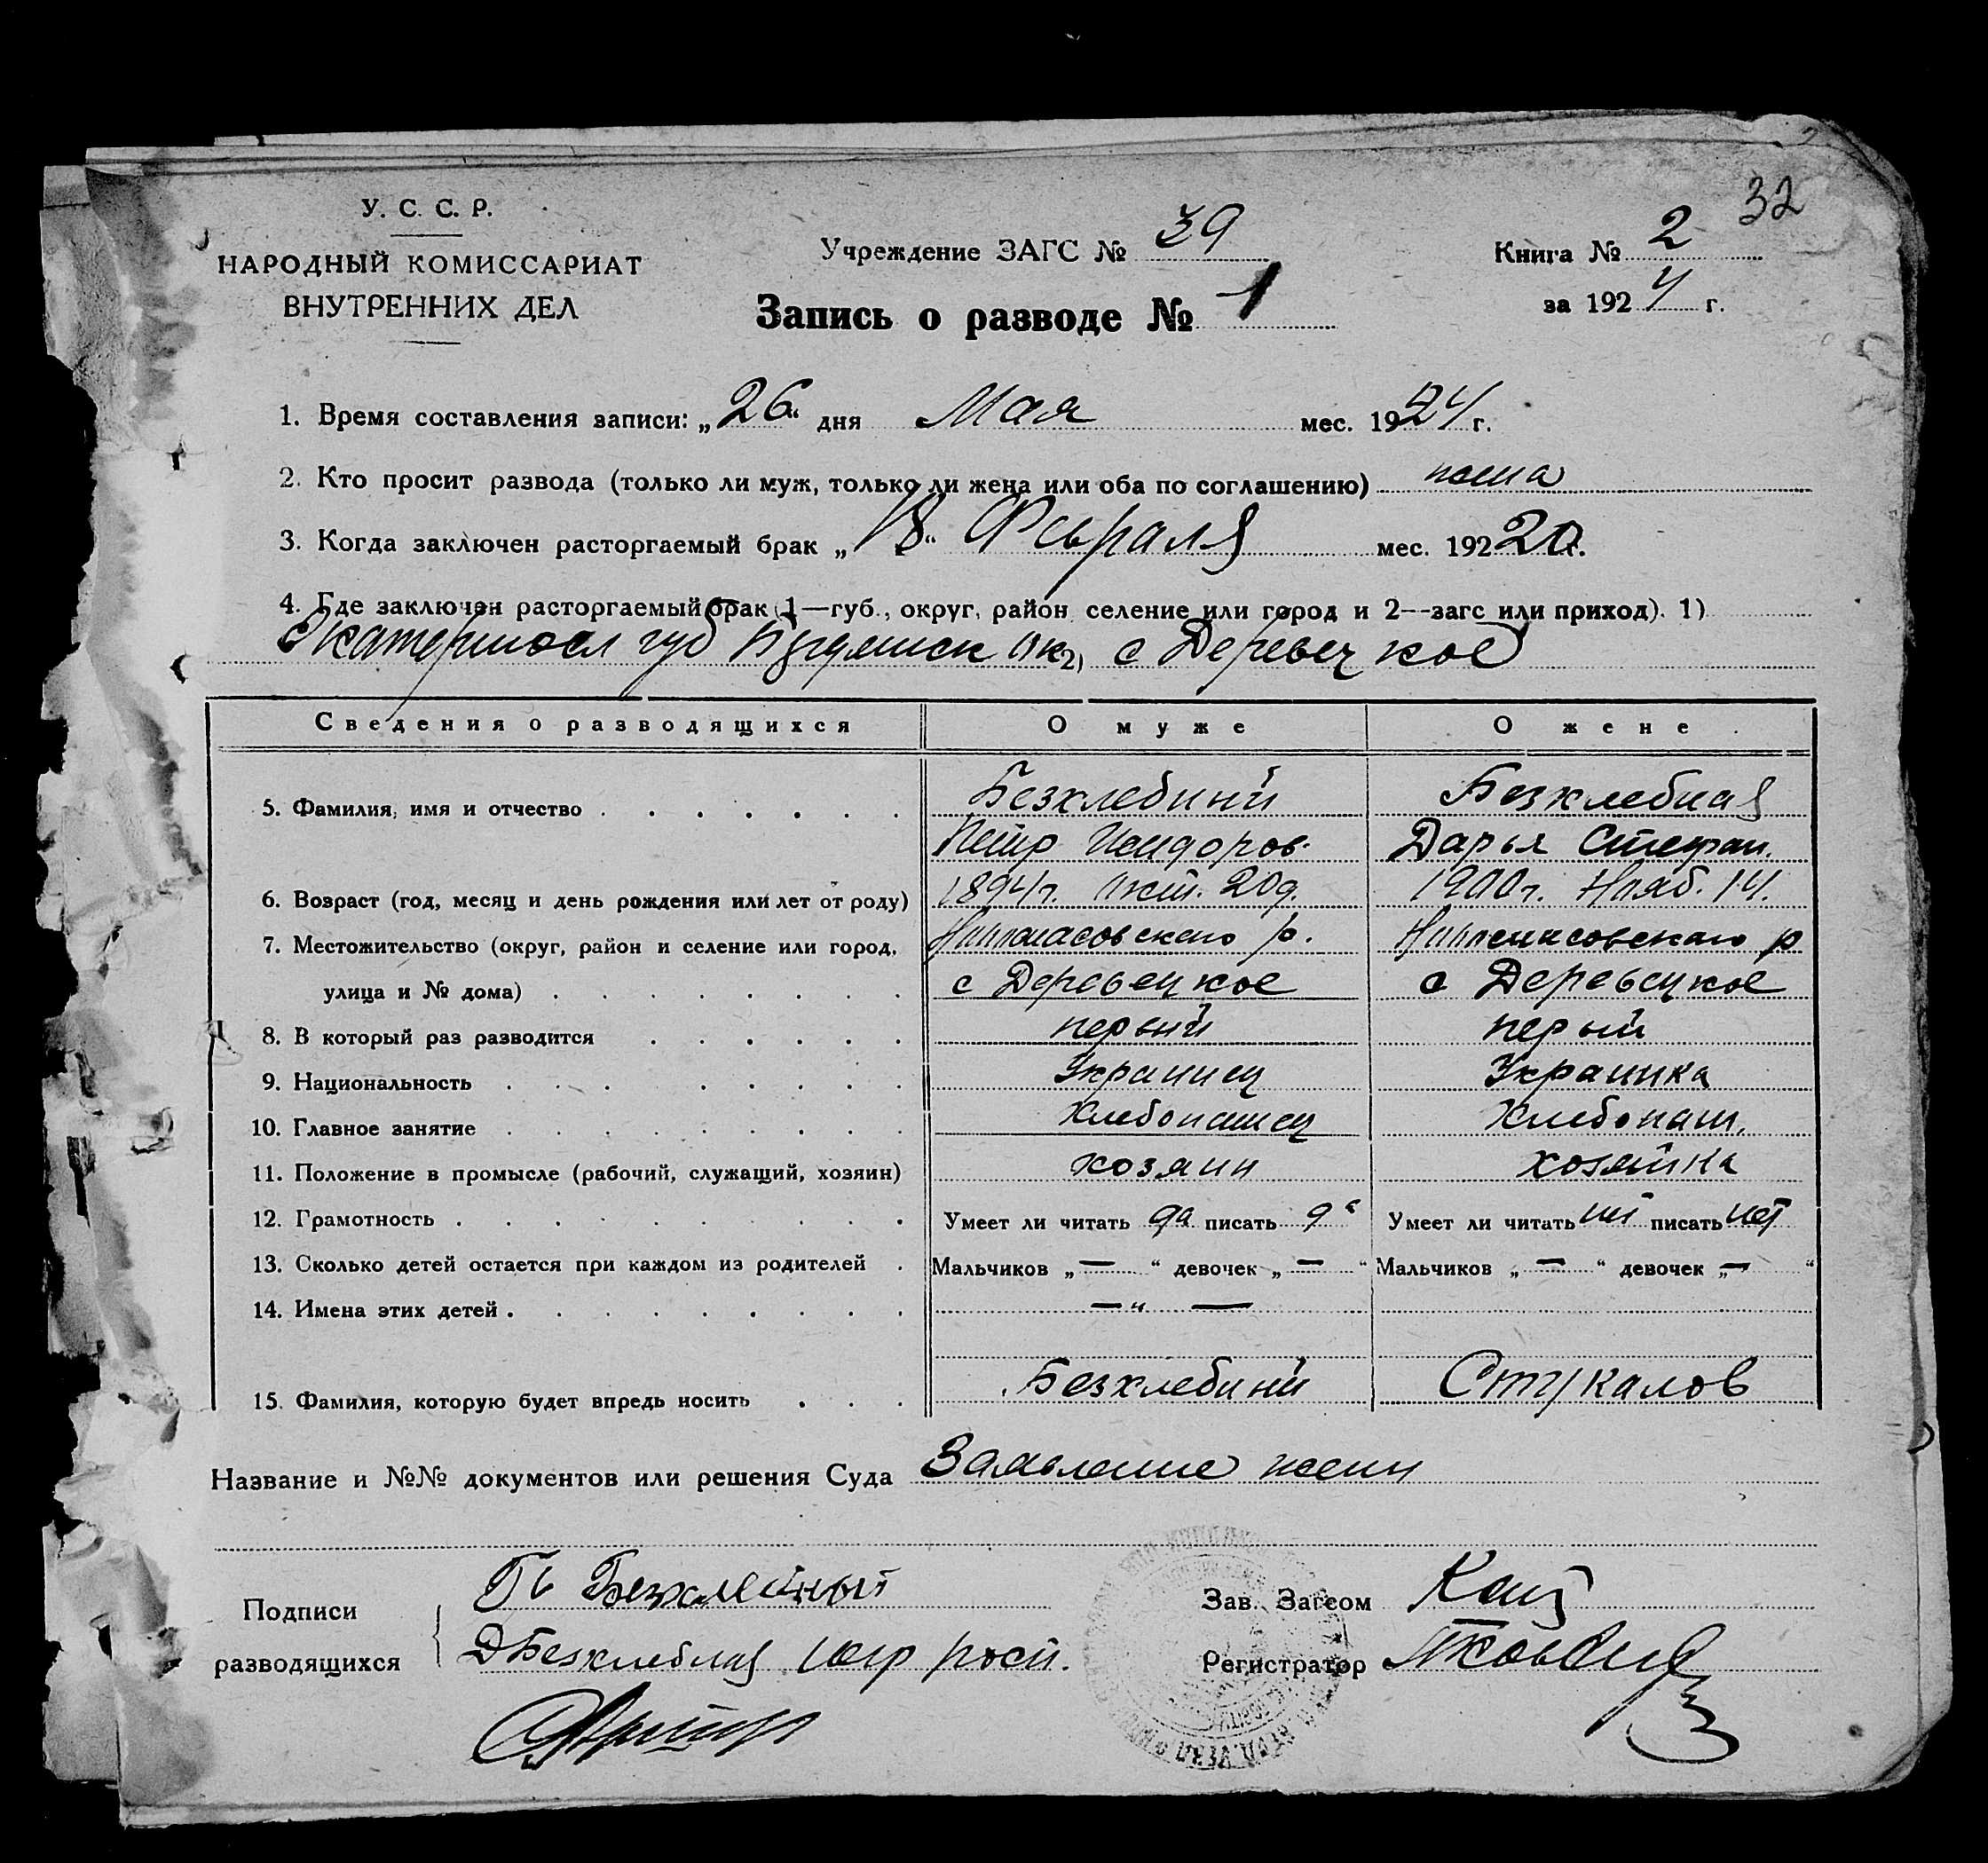 32
У. С. С. Р.
НАРОДНЫЙ КОМИССАРИАТ
ВНУТРЕННИХ ДЕЛ
Учреждение ЗАГС № 39
Книга № 2
за 1924 г.
Запись о разводе № 1
1. Время составления записи: „26“ дня Мая мес. 1924 г.
2. Кто просит развода (только ли муж, только ли жена или оба по соглашению) жена
3. Когда заключен расторгаемый брак „18“ Февраля мес. 192 20 г.
4. Где заключен расторгаемый брак (1—губ., округ, район, селение или город и 2—загс или приход). 1)
Екатериносл губ окр с Деревецкое
Сведения о разводящихся О муже О жене
5. Фамилия, имя и отчество Безхлебний Безхлебная
Петр Исидоров. Дарья Стефан.
6. Возраст (год, месяц и день рождения или лет от роду) 1894 г. Окт. 20 д. 1900 г. Нояб. 14.
7. Местожительство (округ, район и селение или город, р. р
улица и № дома) с Деревецкое с Деревецкое
8. В который раз разводится первый перый
9. Национальность Украинец Украинка
10. Главное занятие Хлебопашец Хлебопаш.
11. Положение в промысле (рабочий, служащий, хозяин) хозяин хозяйка
12. Грамотность Умеет ли читать да писать да Умеет ли читать нет писать нет
13. Сколько детей остается при каждом из родителей Мальчиков „ — “ девочек „ — “ Мальчиков „ — “ девочек „ — “
14. Имена этих детей — „ —
15. Фамилия, которую будет впредь носить Безхлебний Стукалов
Название и №№ документов или решения Суда Заявление жени
Подписи
разводящихся
Безхлебный
Д Безхлебная негр росп.
Зав. Загсом
Регистратор